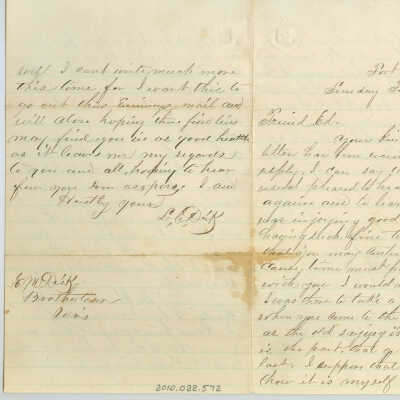 well I cant write much more
this time for I want this to
go out this Evenings mail and
will close hoping these few lines
may find you in as good health
as it leaves me my regards
to you and all, hoping to hear
from you soon as I am
Yours
L. E. Dick
E. M. Dick
Brothertown
Wis
2010.022.572
Port
Sunday
Friend Ed.
Your kin
letter has been
reply. I can say
pleased to hea
again and to lear
are injoying good
having such fine
you may
Cause, time must
with you I would
time to take a
when you come to the
as the old saying is
is the part, that
last. I suppose that
how it is myself